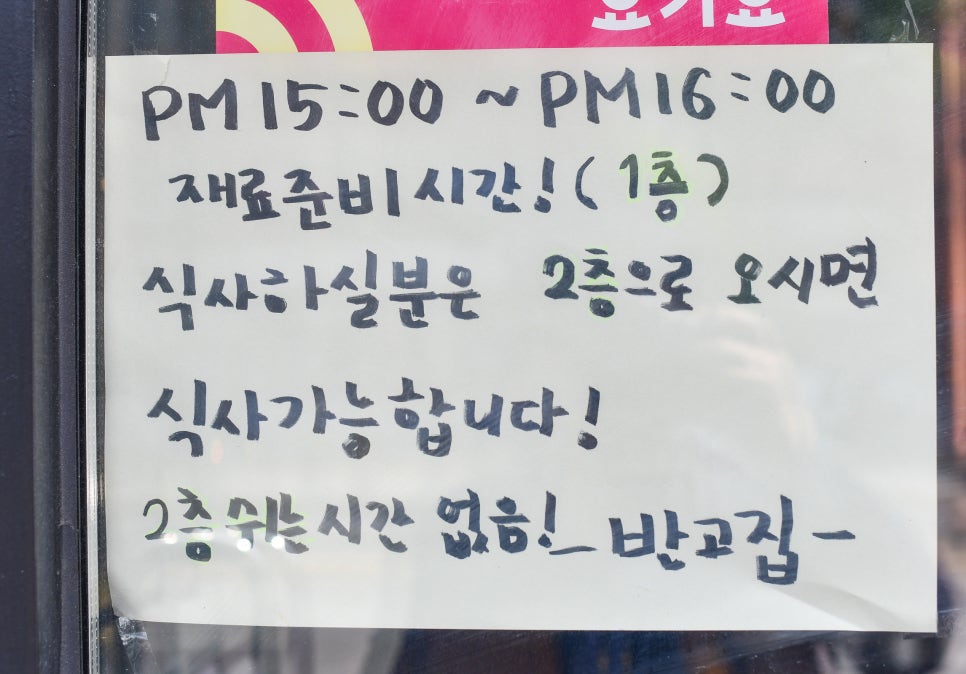 요기요
PM 15:00 ~ PM 16:00
재료준비시간! (1층)
식사하실분은 2층으로 오시면
식사가능합니다!
2층 쉬는시간 없음! - 반고집 -